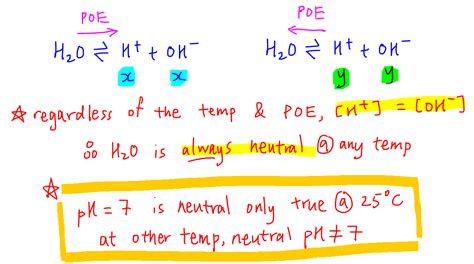 POE POE
H₂O ⇌ H⁺ + OH⁻ H₂O ⇌ H⁺ + OH⁻
x x y y
☆ regardless of the temp & POE, [H⁺] = [OH⁻]
∴ H₂O is always neutral @ any temp
☆
pH = 7 is neutral only true @ 25°C
at other temp, neutral pH ≠ 7